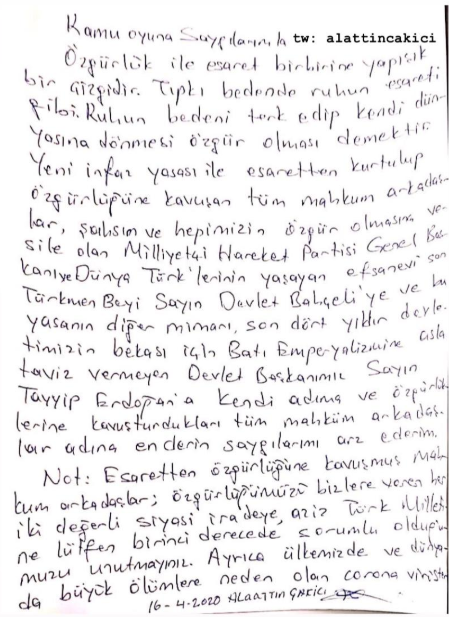 Kamu oyuna Saygılarımla tw: alattincakici
Özgürlük ile esaret birbirine yapışık
bir çizgidir. Tıpkı bedende ruhun esareti
gibi. Ruhun bedeni terk edip kendi dün-
yasına dönmesi özgür olması demektir.
Yeni infaz yasası ile esaretten kurtulup
özgürlüğüne kavuşan tüm mahkum arkadaş-
lar, şahsım ve hepimizin özgür olmasına ve-
sile olan Milliyetçi Hareket Partisi Genel Baş-
kanı ve Dünya Türk'lerinin yaşayan efsanevi son
Türkmen Beyi Sayın Devlet Bahçeli'ye ve bu
yasanın diğer mimarı, son dört yıldır devle-
timizin bekası için Batı Emperyalizmine asla
taviz vermeyen Devlet Başkanımız Sayın
Tayyip Erdoğan'a kendi adıma ve özgürlük-
lerine kavuşturdukları tüm mahkûm arkadaş-
lar adına en derin saygılarımı arz ederim.
Not: Esaretten özgürlüğüne kavuşmuş mah-
kum arkadaşlar; özgürlüğümüzü bizlere veren her
iki değerli siyasi iradeye, aziz Türk Milleti-
ne lütfen birinci derecede sorumlu olduğu-
muzu unutmayınız. Ayrıca ülkemizde ve dünya-
da büyük ölümlere neden olan corona
16-4-2020 ALAATTİN ÇAKICI